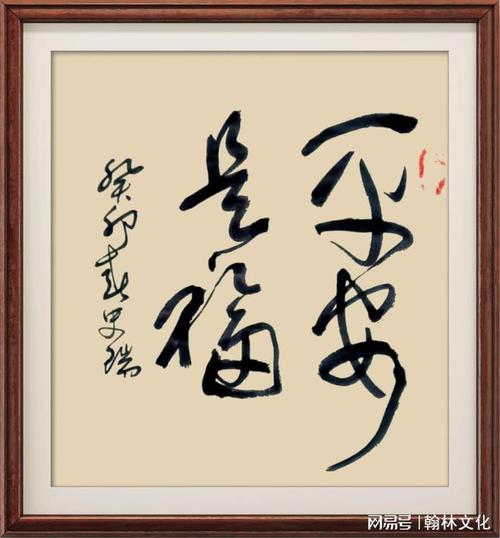 平安
是福
癸卯春史瑞
网易号 | 翰林文化